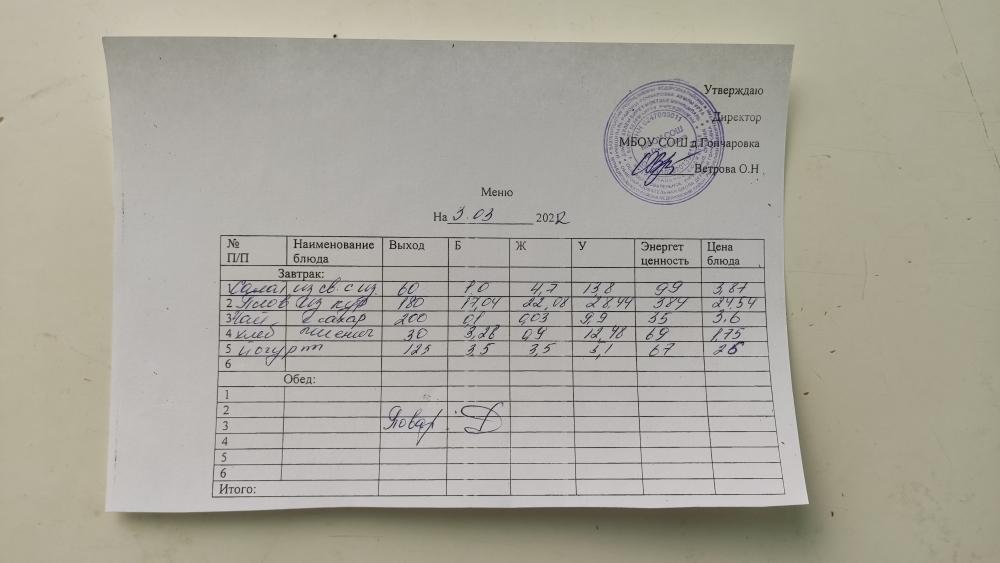 Утверждаю
Директор
МБОУ СОШ д.Гончаровка
Ветрова О.Н
Меню
На 3.03 2022
№ П/П Наименование блюда Выход Б Ж У Энергет ценность Цена блюда
Завтрак:
Салат из св. с из 60 1,0 4,7 13,8 99 3,87
2 Плов из кур 180 17,04 22,08 28.44 384 24,54
3 Чай с сахар 200 0,1 0,03 9,9 35 3.6
4 хлеб пшенич 30 3,28 0,9 12,48 69 1,75
5 йогурт 125 3,5 3,5 5,1 67 26
6
Обед:
1
2
3 Повар
4
5
6
Итого: